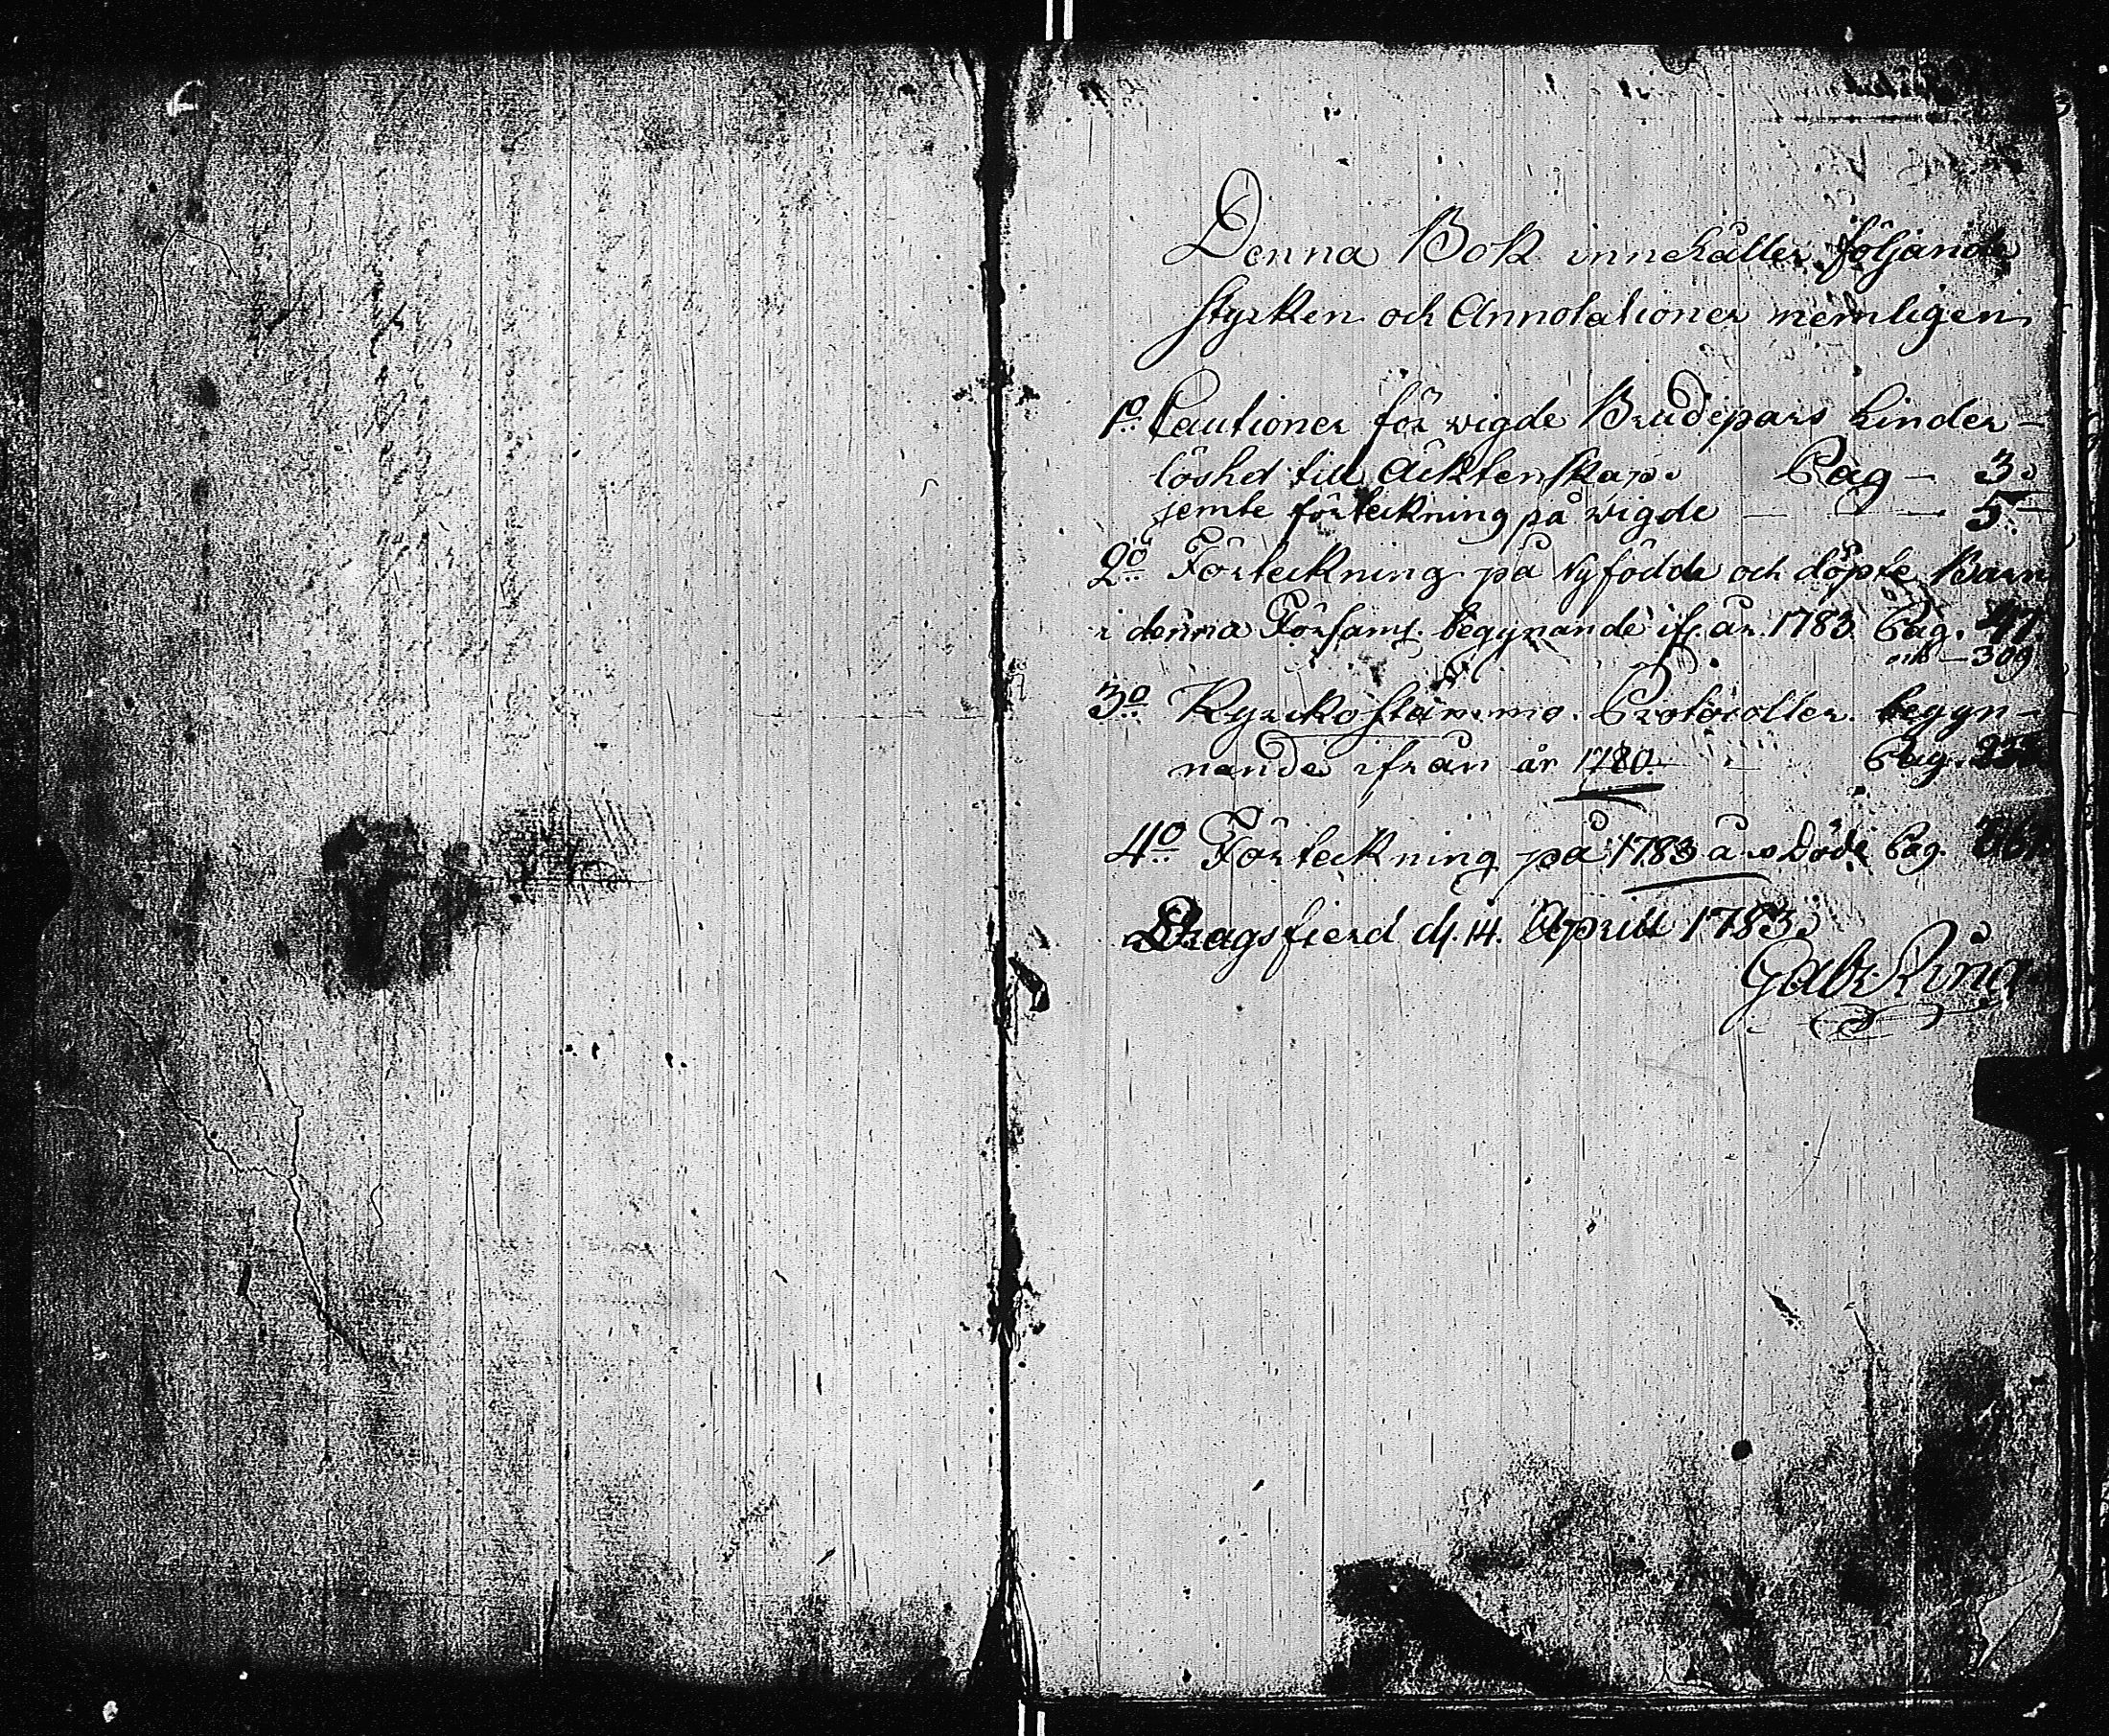 Denna Bok innehåller följande
stycken och Annotationer nemligen
1o Cautioner för wigde Brudepars hinder-
löshet till Äcktenskap. Pag - 3.
jemte förteckning på wigde - - - 5.
2o Förteckning på nyfödde och döpte Barn
i denna Församl. begynande ifr. år 1783 Pag. 47.
och - 309
3o Kyrckostämmo Protocoller begyn-
nande ifrån år 1780. - - Pag.
4o Förteckning på 1783 års Döde Pag.
Dragsfierd d. 14. Aprill 1783.
Gabr